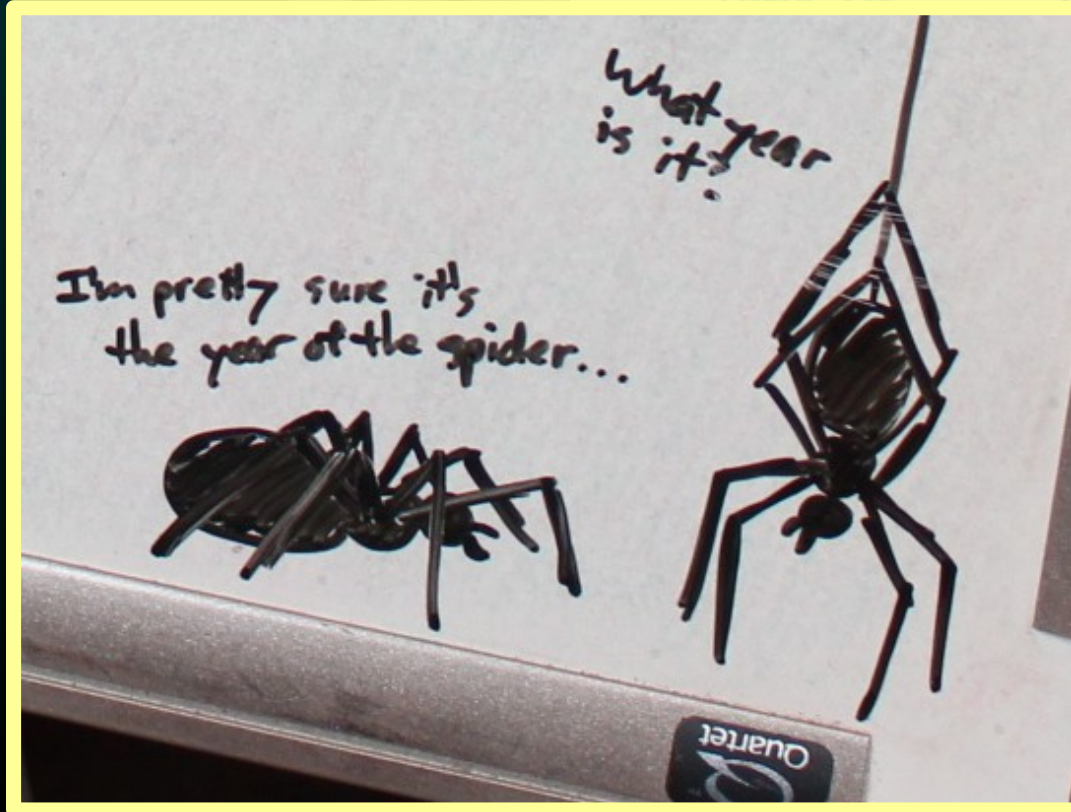 What year
is it?
I'm pretty sure it's
the year of the spider...
Quartet